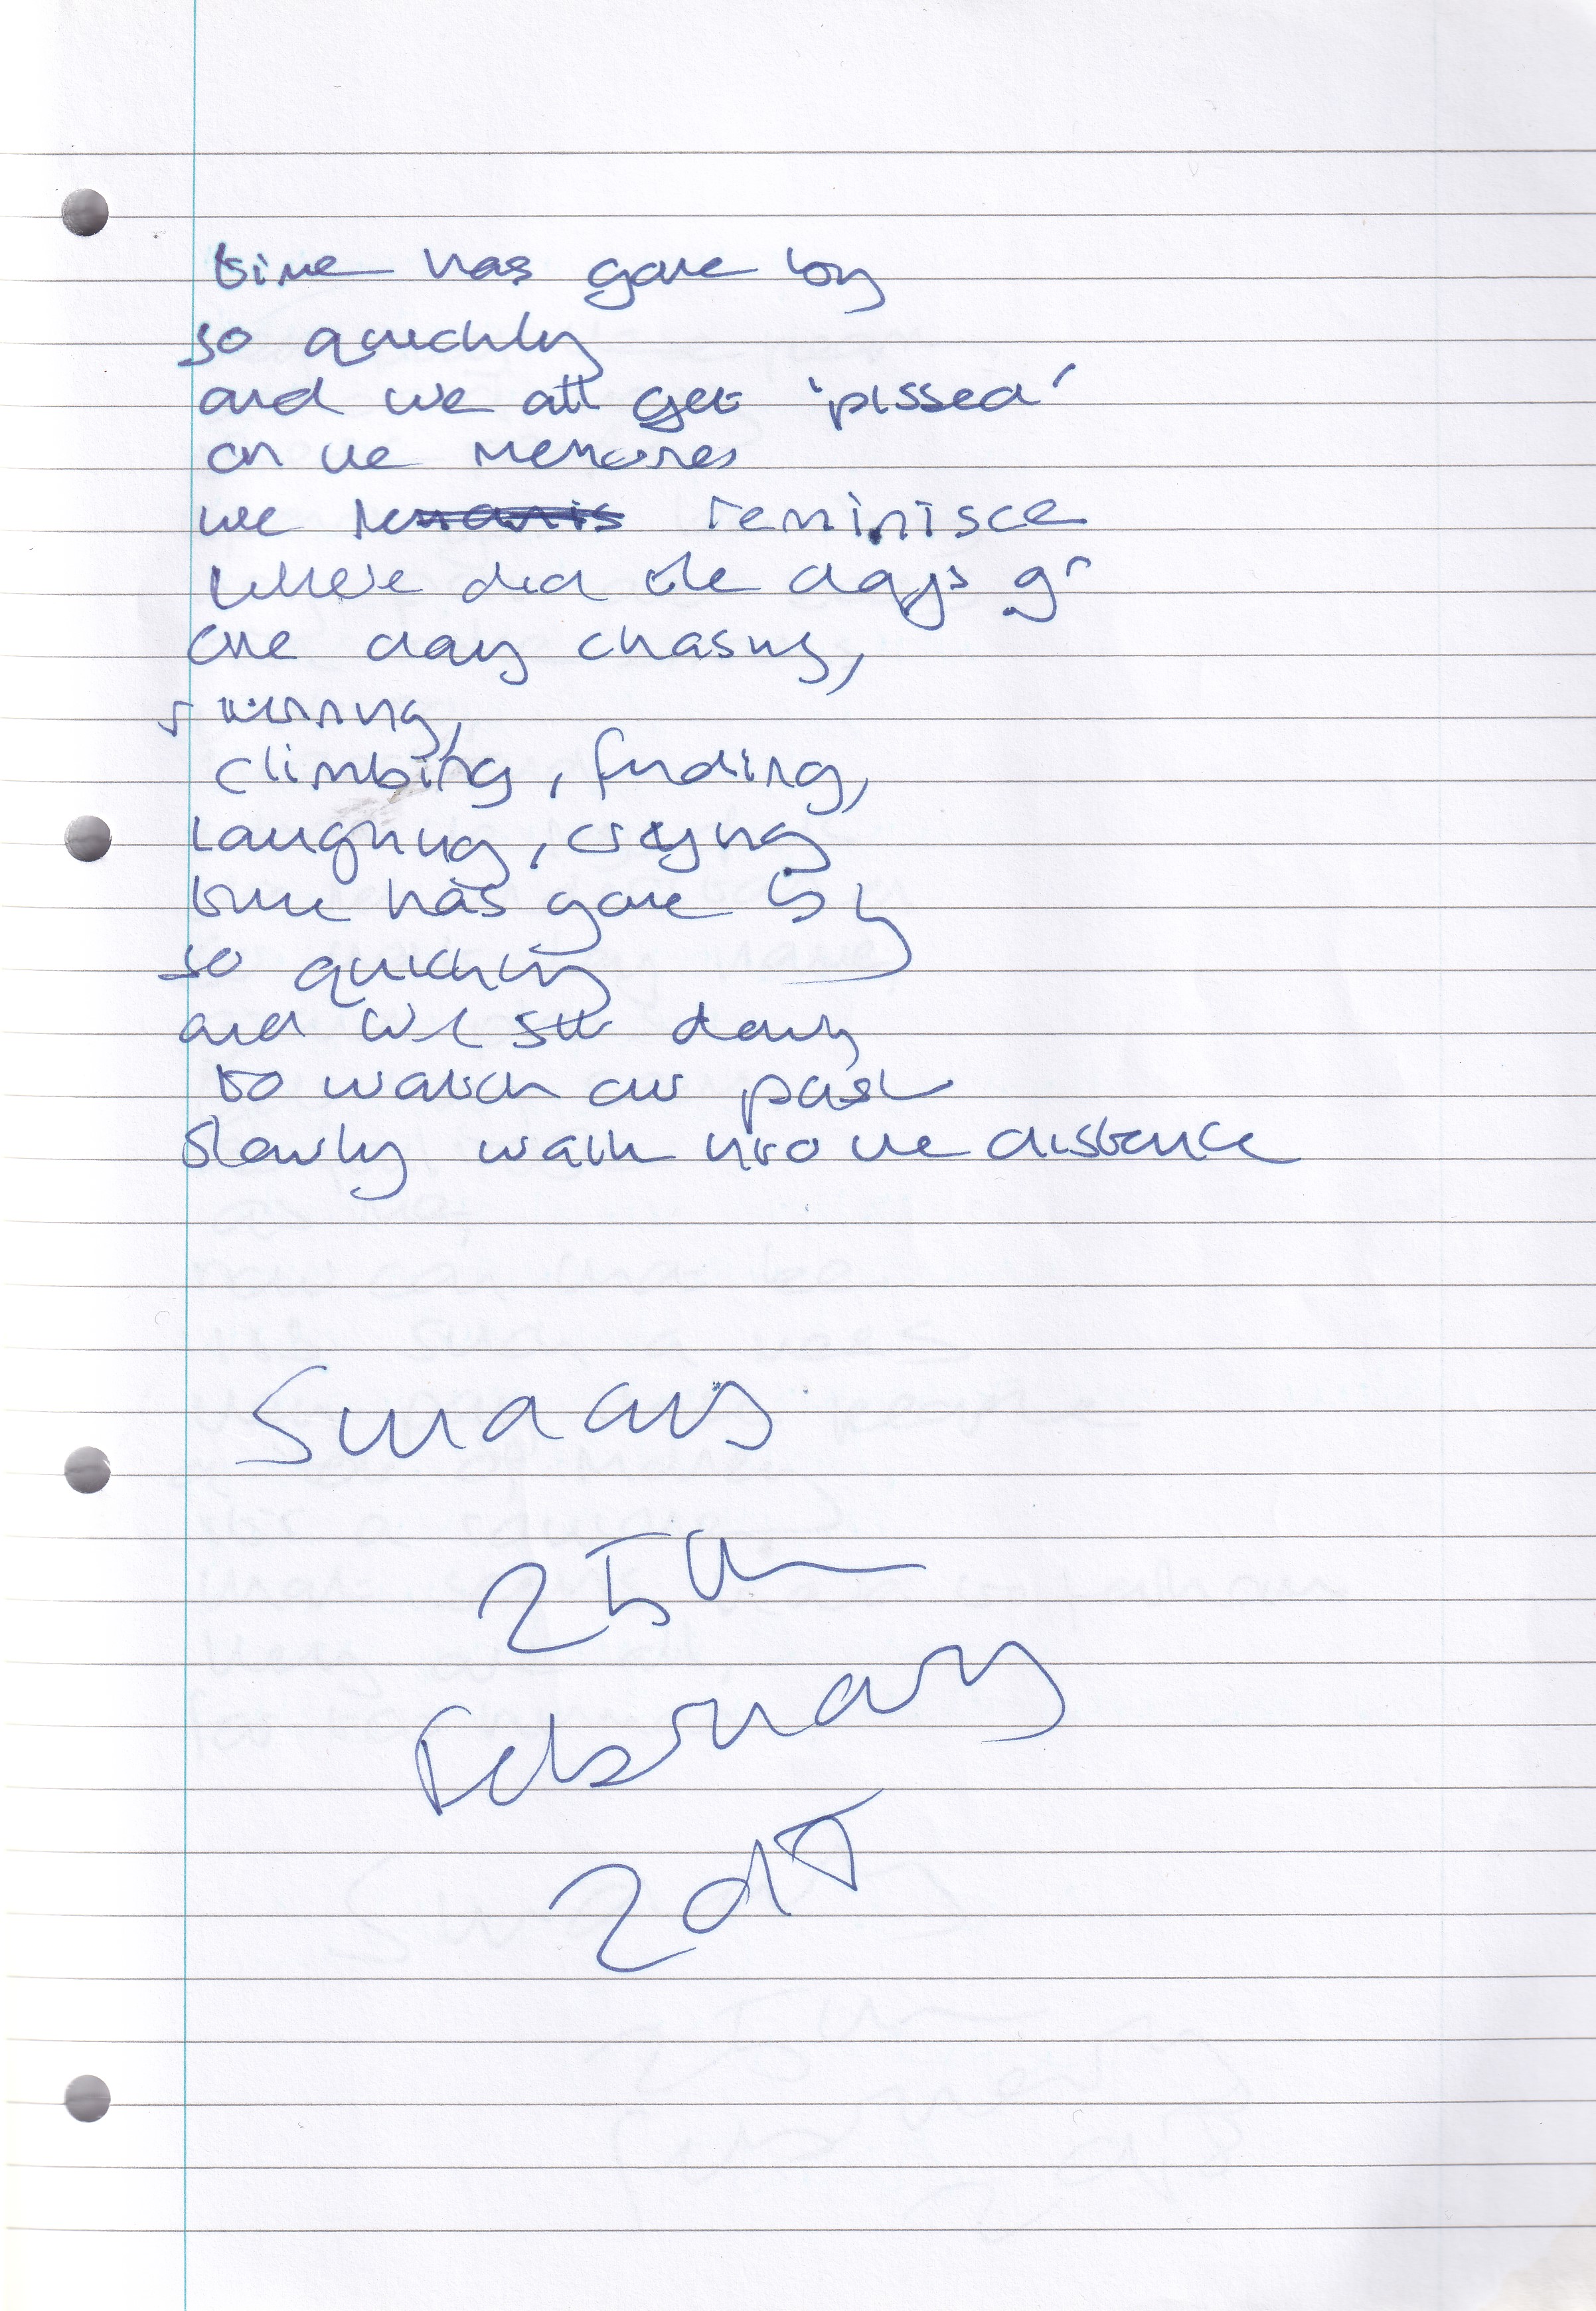 time has gone by
so quickly
and we all get 'pissed'
on the memories
we reminisce
where did the days go
one day chasing,
running,
climbing, finding,
laughing, crying
time has gone by
so quickly
and we sit down
to watch our past
slowly walk into the distance
25th
February
2015